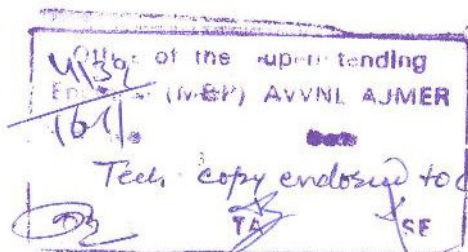 Office of the Superintending
Engineer (M&P) AVVNL AJMER
4139
16-11.
Tech. copy endosed to
TA SE